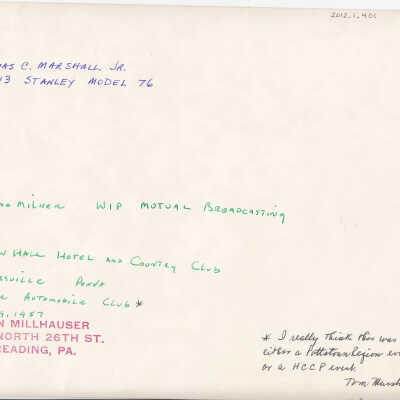 2012.1.401
AS C. MARSHALL JR.
13 STANLEY MODEL 76
MILNER WIP MUTUAL BROADCASTING
HALL HOTEL AND COUNTRY CLUB
SVILLE PENNA
AUTOMOBILE CLUB *
, 1957
N MILLHAUSER
NORTH 26TH ST.
READING, PA.
* I really think this was
either a Pottstown Legion ev
or a HCCP event.
Tom Marsh